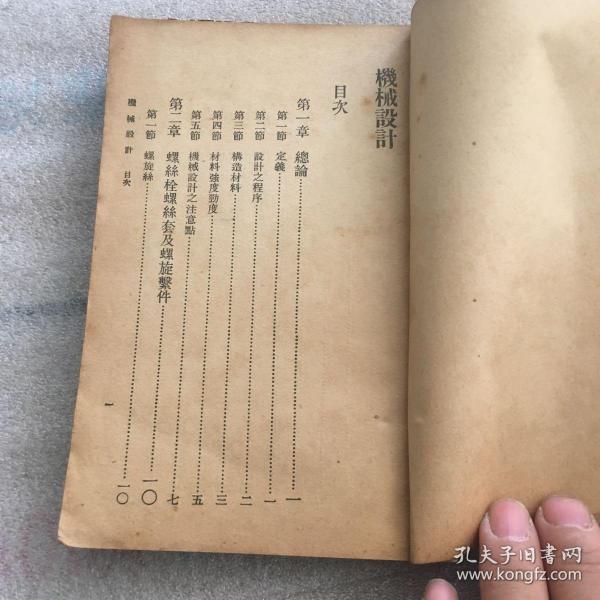 機械設計
目次
第一章 總論……一
第一節 定義……一
第二節 設計之程序……二
第三節 構造材料……三
第四節 材料強度勁度……五
第五節 機械設計之注意點……七
第二章 螺絲栓螺絲套及螺旋繫件……一〇
第一節 螺旋絲……一〇
機械設計 目次
一
孔夫子旧书网
www.kongfz.com